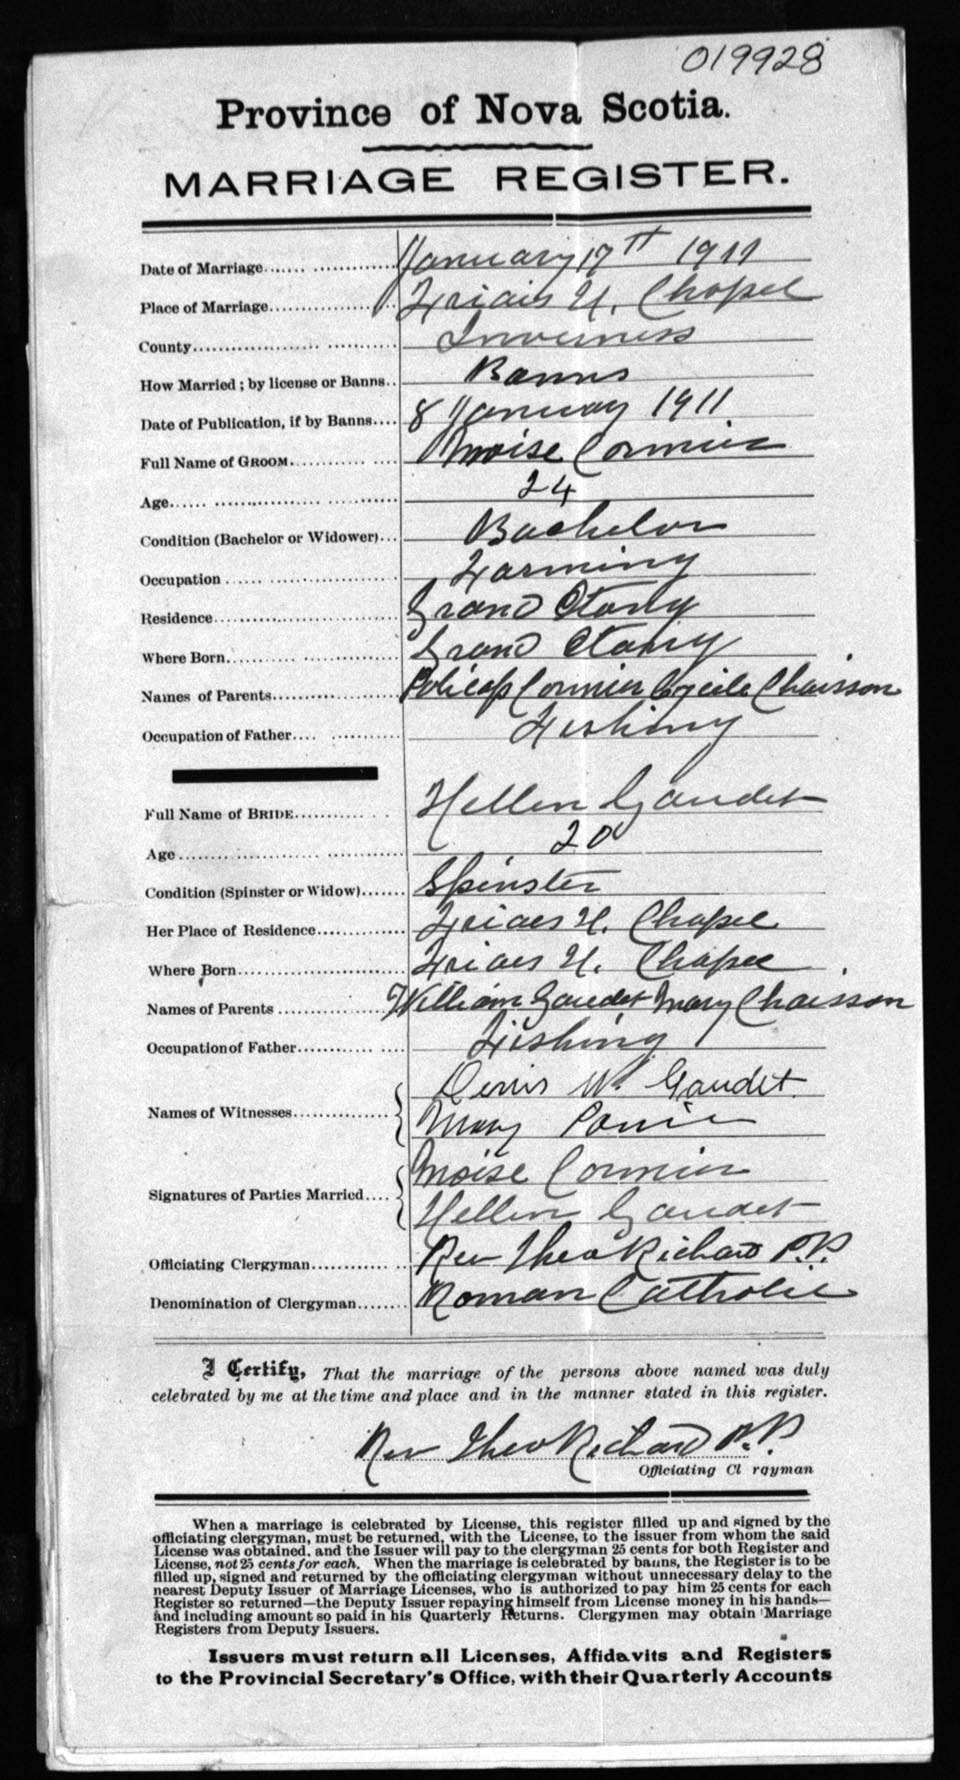 019928
Province of Nova Scotia.
MARRIAGE REGISTER.
Date of Marriage January 17th 1911
Place of Marriage Friars H. Chapel
County Inverness
How Married; by license or Banns Banns
Date of Publication, if by Banns 8 January 1911
Full Name of GROOM Moise Cormier
Age 24
Condition (Bachelor or Widower) Bachelor
Occupation Farming
Residence Grand Etang
Where Born Grand Etang
Names of Parents Policap Cormier Cecile Chaisson
Occupation of Father Fishing
Full Name of BRIDE Hellen Gaudet
Age 20
Condition (Spinster or Widow) Spinster
Her Place of Residence Friars H. Chapel
Where Born Friars H. Chapel
Names of Parents William Gaudet Mary Chaisson
Occupation of Father Fishing
Names of Witnesses Denis W. Gaudet
Mary
Signatures of Parties Married Moise Cormier
Hellen Gaudet
Officiating Clergyman Rev Theo Richard P.P.
Denomination of Clergyman Roman Catholic
I Certify, That the marriage of the persons above named was duly
celebrated by me at the time and place and in the manner stated in this register.
Rev Theo Richard P.P.
Officiating Cl rgyman
When a marriage is celebrated by License, this register filled up and signed by the
officiating clergyman, must be returned, with the License, to the issuer from whom the said
License was obtained, and the Issuer will pay to the clergyman 25 cents for both Register and
License, not 25 cents for each. When the marriage is celebrated by banns, the Register is to be
filled up, signed and returned by the officiating clergyman without unnecessary delay to the
nearest Deputy Issuer of Marriage Licenses, who is authorized to pay him 25 cents for each
Register so returned—the Deputy Issuer repaying himself from License money in his hands—
and including amount so paid in his Quarterly Returns. Clergymen may obtain Marriage
Registers from Deputy Issuers.
Issuers must return all Licenses, Affidavits and Registers
to the Provincial Secretary's Office, with their Quarterly Accounts